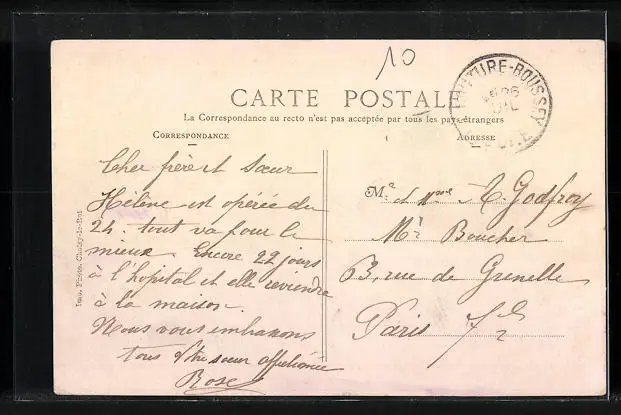 10
CARTE POSTALE
La Correspondance au recto n'est pas acceptée par tous les pays étrangers
CORRESPONDANCE
ADRESSE
Cher frère et sœur
Hélène est opérée du
24. tout va pour le
mieux. Encore 22 jours
à l'hopital et elle reviendra
à la maison.
Nous vous embrassons
tous Votre sœur affectionnée
Rose
M. et Mme A. Godfroy
Md Boucher
63, rue de Grenelle
Paris 7e